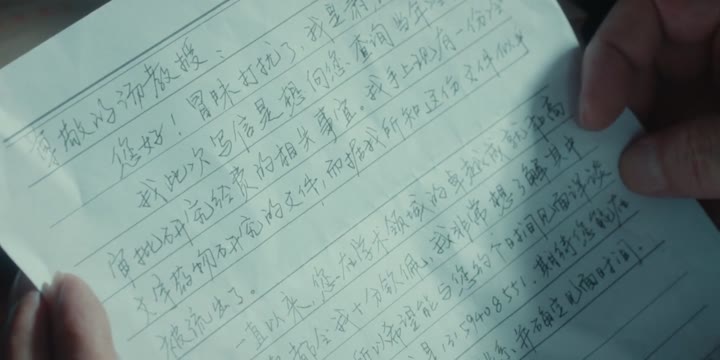 尊敬的汤教授：
您好！冒昧打扰了，我是
我此次写信是想向您查询当年
审批研究经费的相关事宜。我手上现有一份
文库药物研究的文件，而据我所知这份文件似乎
被流出了。
一直以来，您在学术领域的卓越成就和高
都令我十分钦佩。我非常想了解其中
所以希望能与您约个时间见面详谈
13159408551. 期待您能在
并确定见面时间.